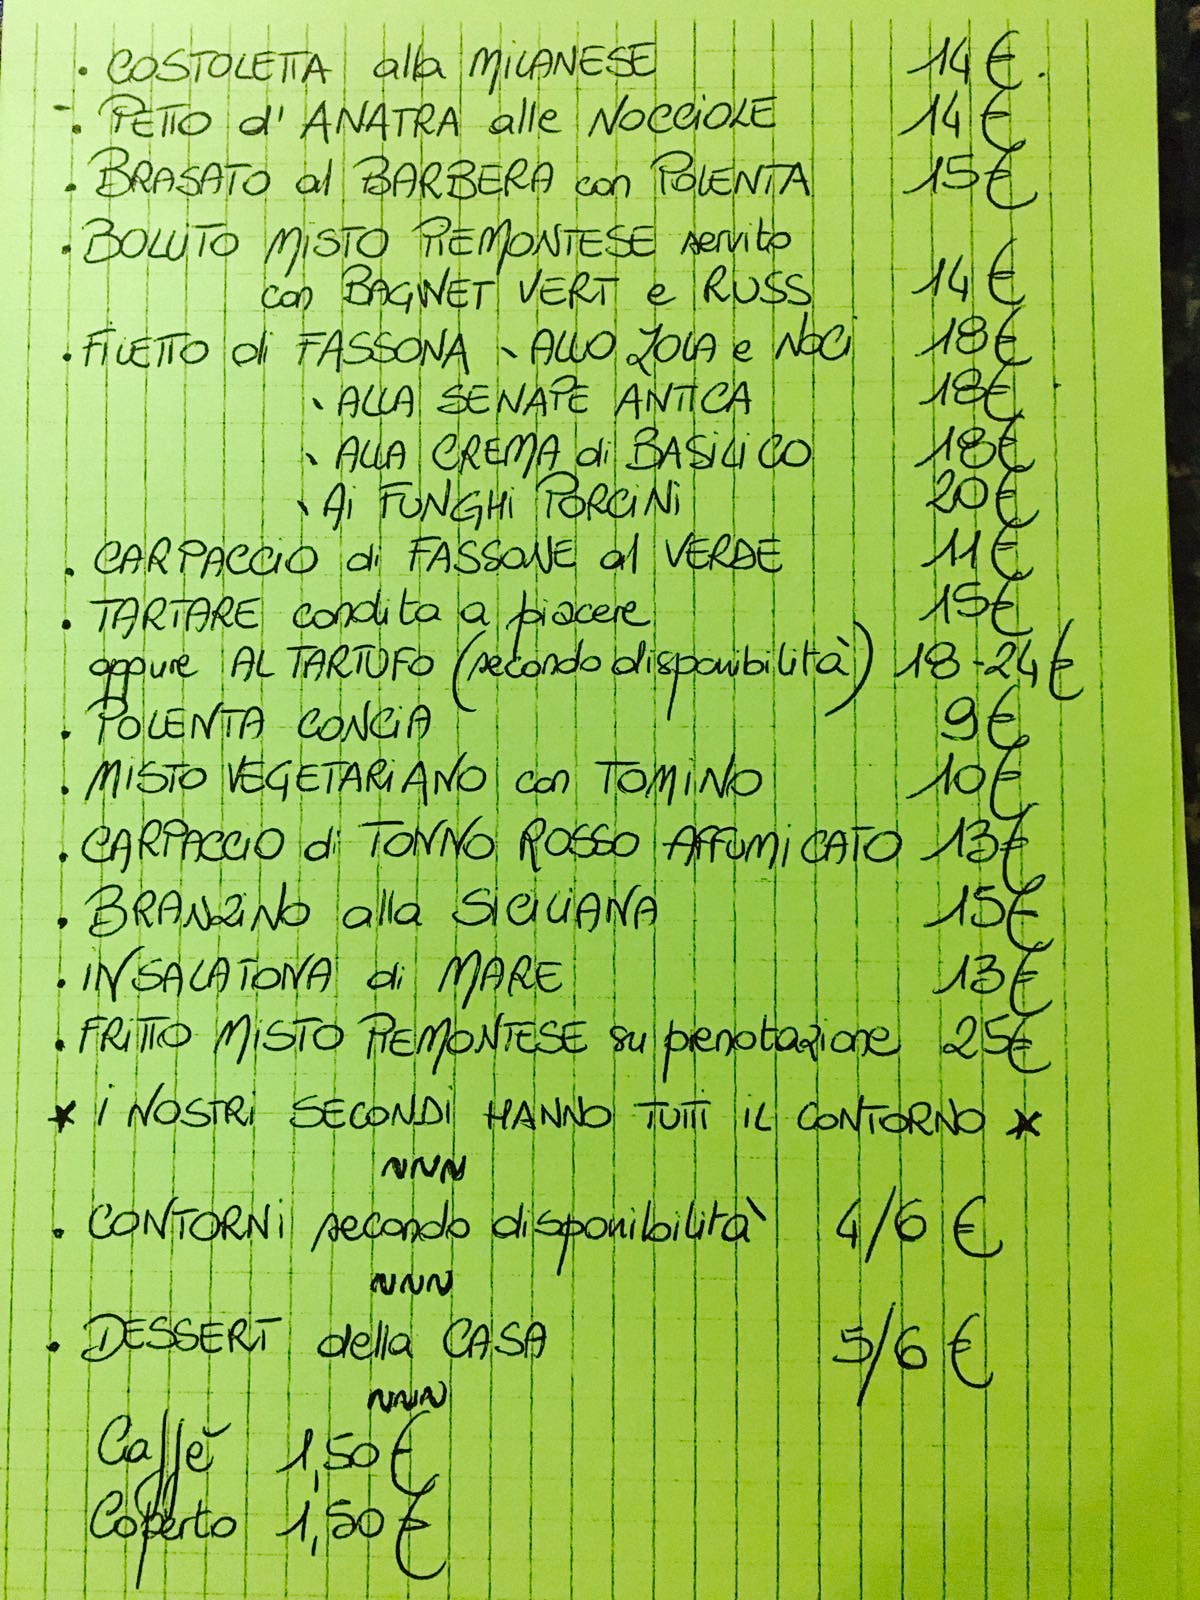 . COSTOLETTA alla MILANESE 14 €.
. PETTO d' ANATRA alle NOCCIOLE 14 €
. BRASATO al BARBERA con POLENTA 15 €
. BOLLITO MISTO PIEMONTESE servito
con BAGNET VERT e RUSS 14 €
. FILETTO di FASSONA \ ALLO ZOLA e NOCI 18 €
\ ALLA SENAPE ANTICA 18 €
\ ALLA CREMA di BASILICO 18 €
\ Ai FUNGHI PORCINI 20 €
. CARPACCIO di FASSONE al VERDE 11 €
. TARTARE condita a piacere 15 €
oppure AL TARTUFO (secondo disponibilità) 18-24 €
. POLENTA CONCIA 9 €
. MISTO VEGETARIANO con TOMINO 10 €
. CARPACCIO di TONNO ROSSO AFFUMICATO 13 €
. BRANZINO alla SICILIANA 15 €
. INSALATONA di MARE 13 €
. FRITTO MISTO PIEMONTESE su prenotazione 25 €
* I NOSTRI SECONDI HANNO TUTTI IL CONTORNO *
NNN
. CONTORNI secondo disponibilità 4/6 €
NNN
. DESSERT della CASA 5/6 €
NNN
Caffè 1,50 €
Coperto 1,50 €